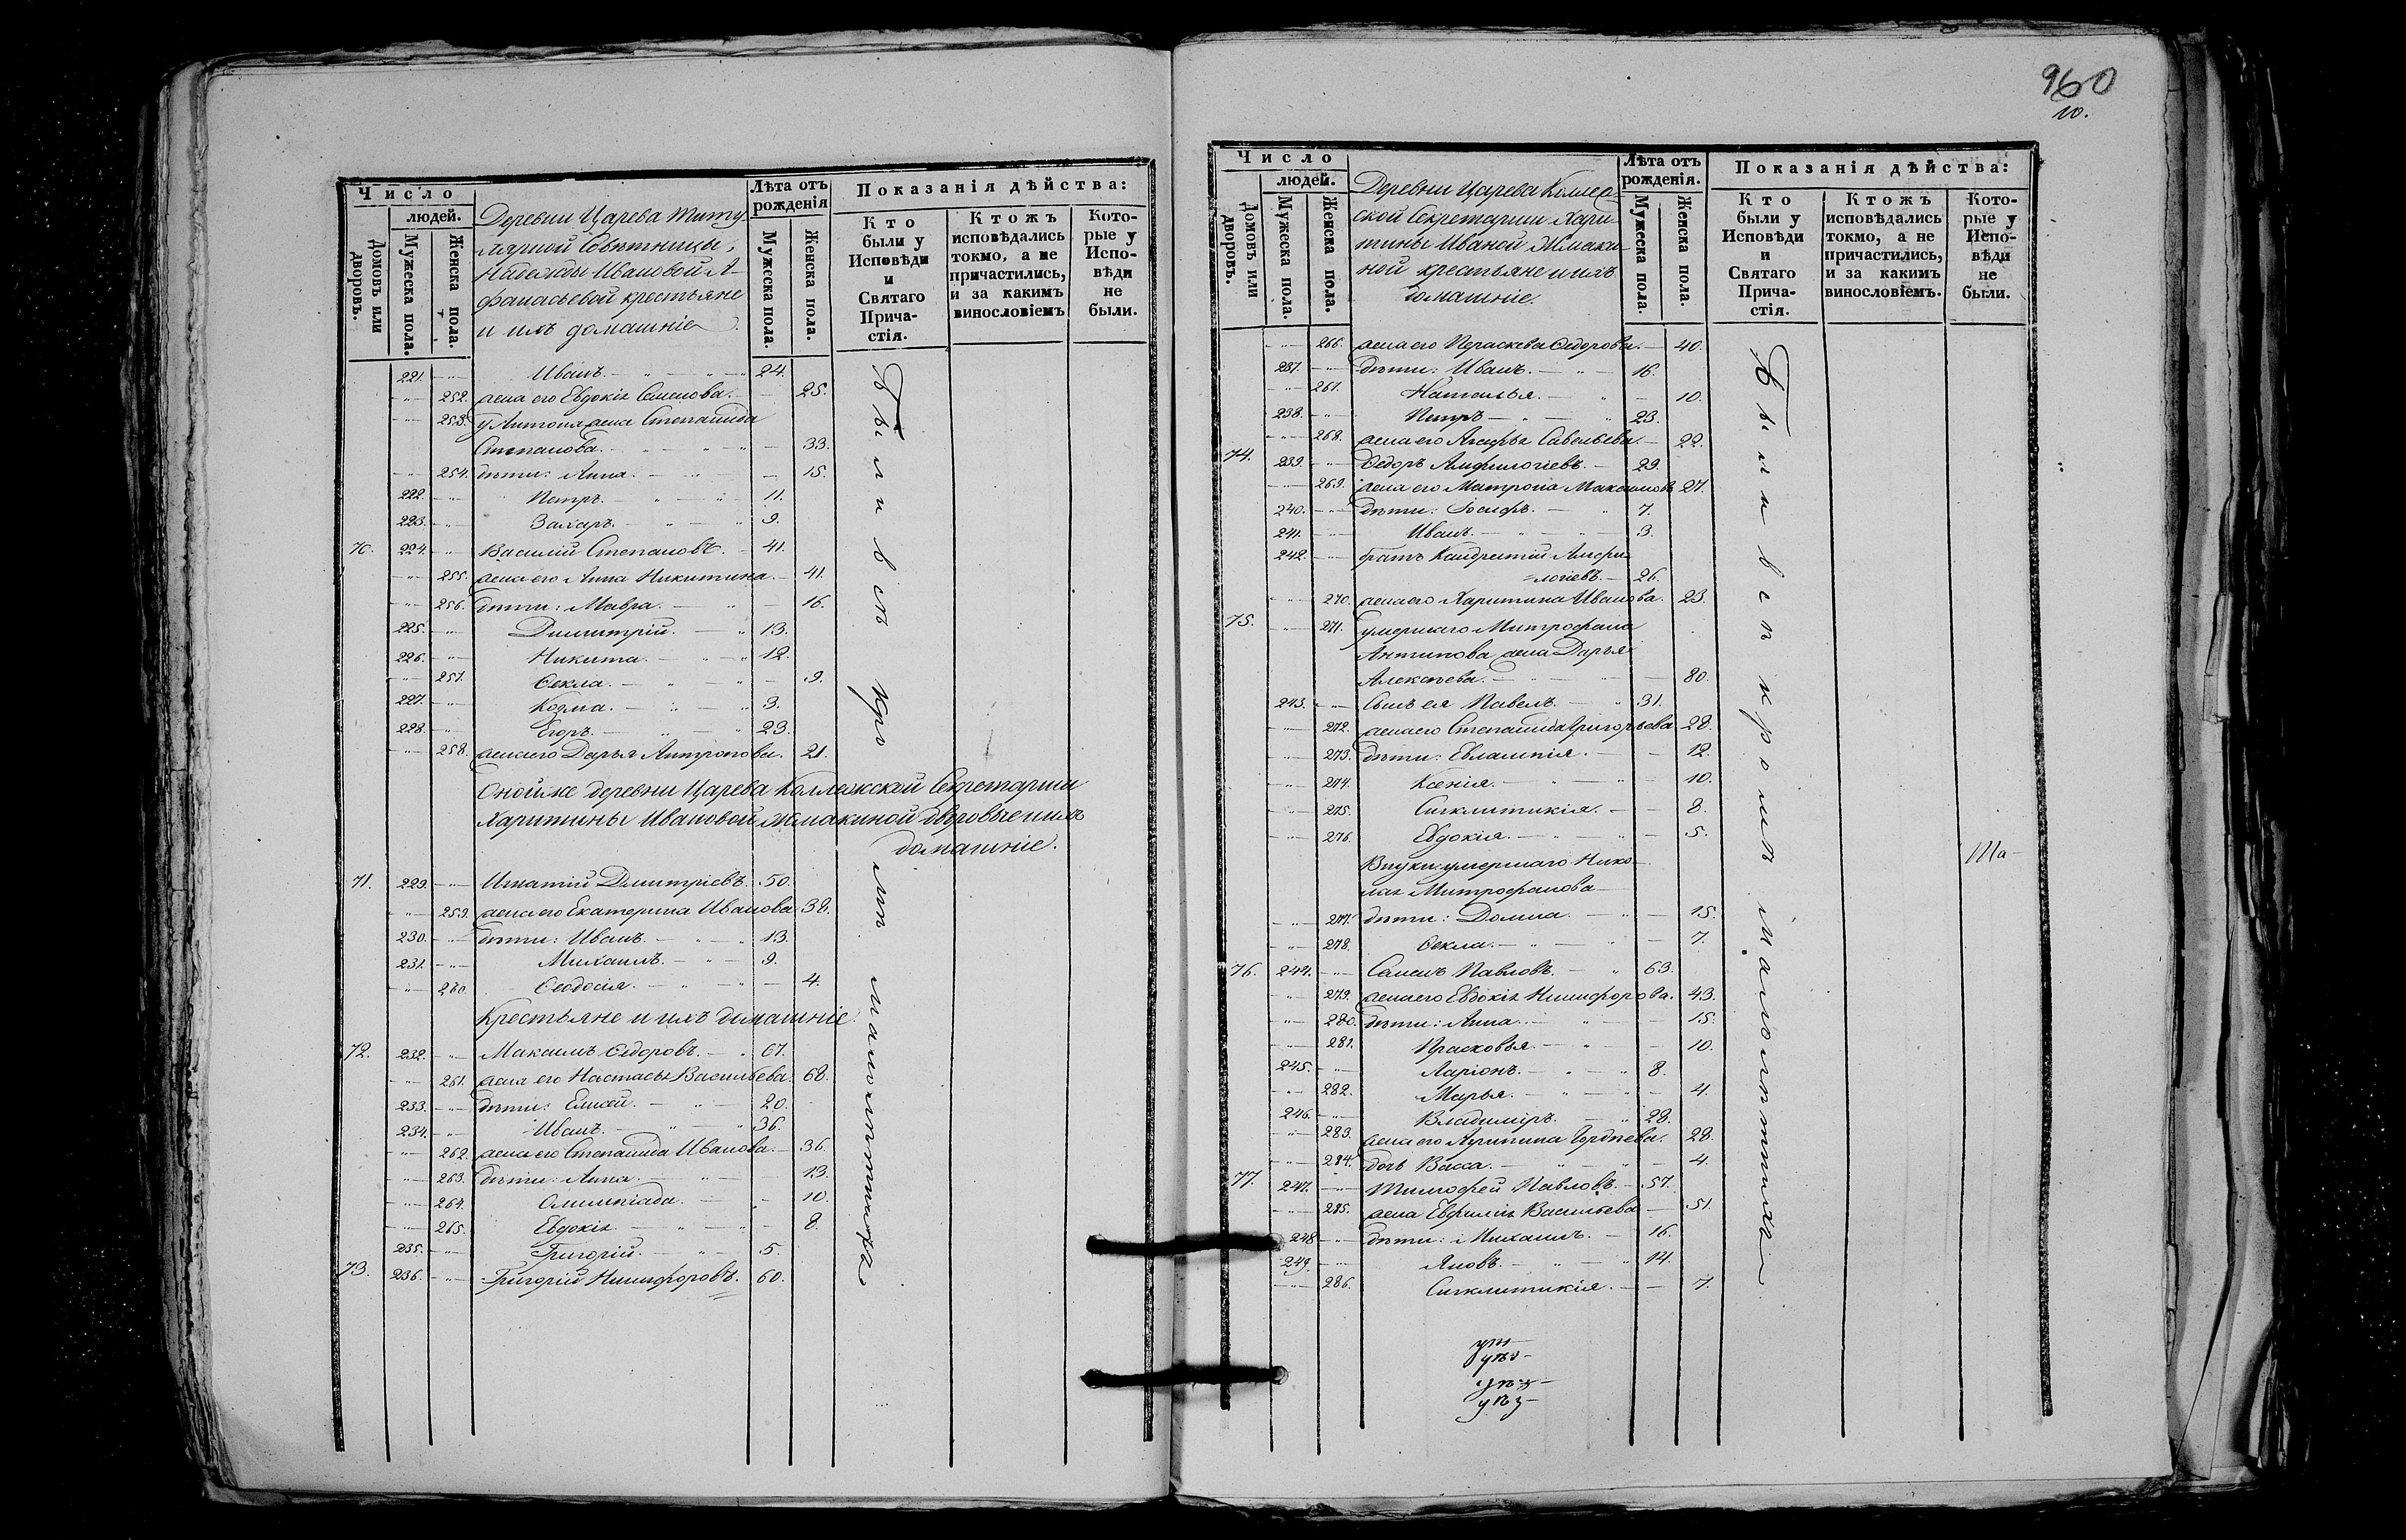 Число
людей.
Домовъ или дворовъ.
Мужеска пола.
Женска пола.
Деревни Царева титу-
лярной Совѣтницы,
Надежды Ивановой А-
фанасьевой крестьяне
и ихъ домашніе
Лѣта отъ рожденія
Мужеска пола.
Женска пола.
Показанія дѣйства:
Кто были у Исповѣди и Святаго Прича-стія.
Ктожъ исповѣдались токмо, а не причастились, и за какимъ винословіемъ
Кото-рые у Испо-вѣди не были.
221. Иванъ. 24.
252. жена его Евдокія Семенова. 25.
253. у Антона жена Степанида
Степанова. 33.
254. дѣти: Анна. 15.
222. Петръ. 11.
223. Захаръ. 9.
70. 224. Василій Степановъ. 41.
255. жена его Анна Никитина. 41.
256. дѣти: Мавра. 16.
225. Димитрій. 13.
226. Никита. 12.
257. Ѳекла. 9.
227. Козма. 3.
228. Егоръ. 23.
258. жена его Дарья Антропова. 21.
Оной же деревни Царева Коллежской Секретарши
Харитины Ивановой Жмакиной дворовые и ихъ
домашніе.
71. 229. Игнатій Дмитріевъ. 50.
259. жена его Екатерина Иванова. 38.
230. дѣти: Иванъ. 13.
231. Михаилъ. 9.
260. Ѳеодосія. 4.
Крестьяне и ихъ домашніе.
72. 232. Максимъ Ѳедоровъ. 67.
261. жена его Настасья Васильева. 68.
233. дѣти: Елисей. 20.
234. Иванъ. 36.
262. жена его Степанида Иванова. 36.
263. дѣти: Анна. 13.
264. Олимпіада. 10.
265. Евдокія. 8.
235. Григорій. 5.
73. 236. Григорій Никифоровъ. 60.
Были всѣ кро мѣ малолѣтныхъ
960
10.
Число
людей.
Домовъ или дворовъ.
Мужеска пола.
Женска пола.
Деревни Царева Коллеж-
ской Секретарши Хари-
тины Иваной Жмаки-
ной крестьяне и ихъ
домашніе.
Лѣта отъ рожденія.
Мужеска пола.
Женска пола.
Показанія дѣйства:
Кто были у Исповѣди и Святаго Прича-стія.
Ктожъ исповѣдались токмо, а не причастились, и за какимъ винословіемъ.
Кото-рые у Испо-вѣди не были.
266. жена его Параскева Ѳедорова. 40.
237. дѣти: Иванъ. 16.
267. Наталья. 10.
238. Петръ 23.
268. жена его Агафья Савельева. 22.
74. 239. Ѳедоръ Амфилогіевъ. 29.
269. жена его Матрона Максимова 27.
240. дѣти: Іосифъ. 7.
241. Иванъ. 3.
242. братъ Кандратій Амфи-
логіевъ. 26.
270. жена его Харитина Иванова. 23.
75. 271. умершаго Митрофана
Антипова жена Дарья
Алексѣева. 80.
243. Сынъ ея Павелъ. 31.
272. жена его Степанида Григорьева 28.
273. дѣти: Евлампія. 12.
274. Ксенія. 10.
275. Сигклитикія. 8.
276. Евдокія. 5.
Внуки: умершаго Нико-
лая Митрофанова
277. дѣти: Домна. 15.
278. Ѳекла. 7.
76. 244. Самсонъ Павловъ. 63.
279. жена его Евдокія Никифорова. 43.
280. дѣти: Анна. 15.
281. Прасковья. 10.
245. Ларіонъ. 8.
282. Марья. 4.
246. Владиміръ. 28.
283. жена его Агрипина Гордѣева. 28.
284. дочь Васса. 4.
77. 247. Тимофей Павловъ. 57.
285. жена Евфимія Васильева 51.
248. дѣти: Михаилъ. 16.
249. Яковъ. 14.
286. Сигклитикія. 7.
Были всѣ кромѣ малолѣтныхъ
Ша-